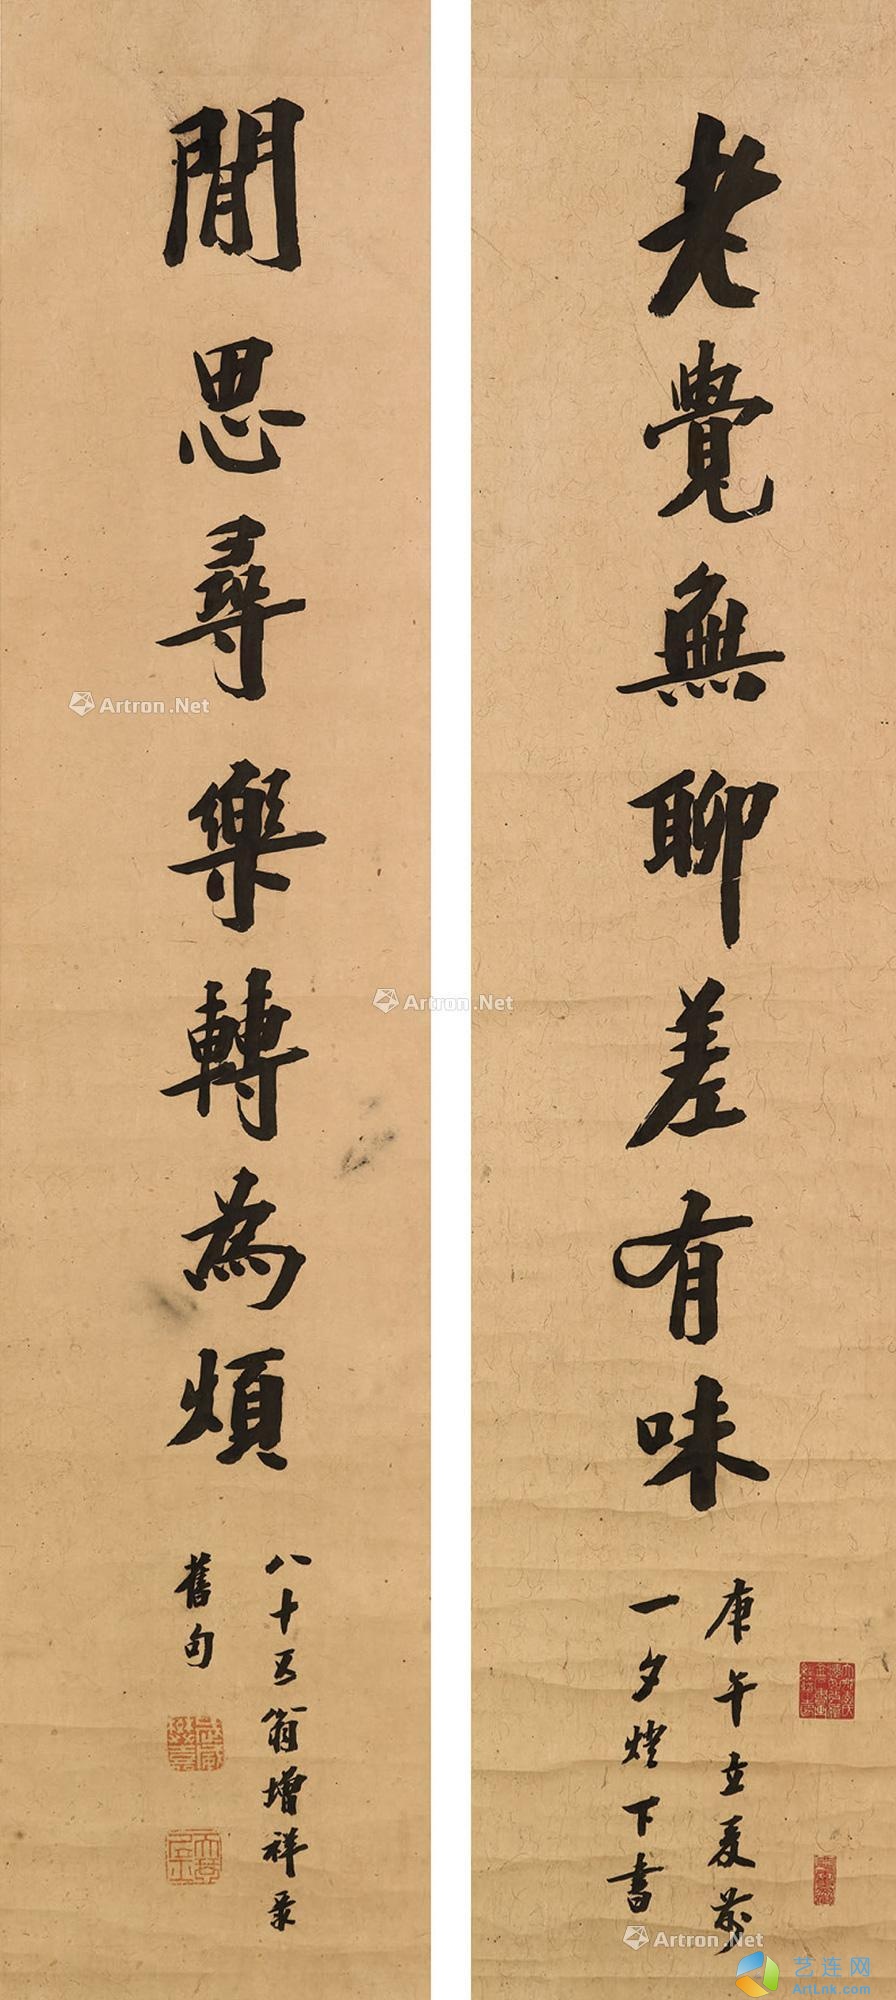 老覺無聊差有味
庚午立夏前
一夕燈下書
閒思尋樂轉為煩
八十五翁增祥录
舊句
Artron.Net
Artron.Net
Artron.Net
艺连网
ArtLok.com